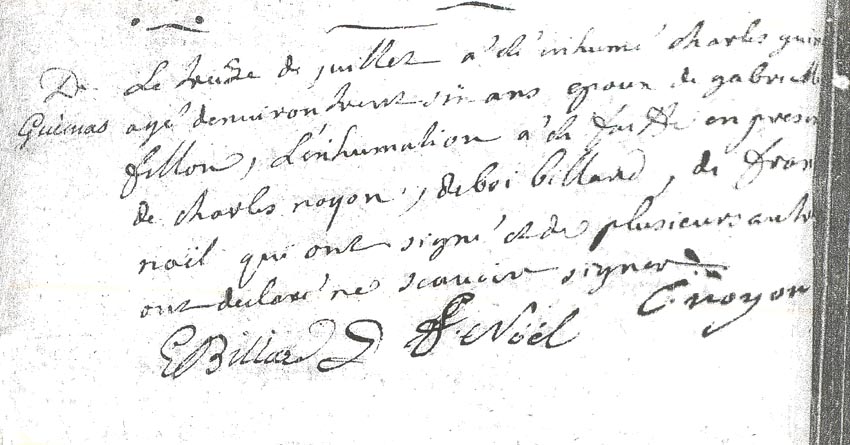 De
Guimas
Le treize de juillet a été inhumé charles gui
agé denviron trent six ans epoux de gabriell
fillon, L'inhumation a été faitte en presen
de charles noyon, de billard, de fran
noël qui ont signé et de plusieurs autr
ont declaré ne scavoir signer
C noyon
E Billard f Noël